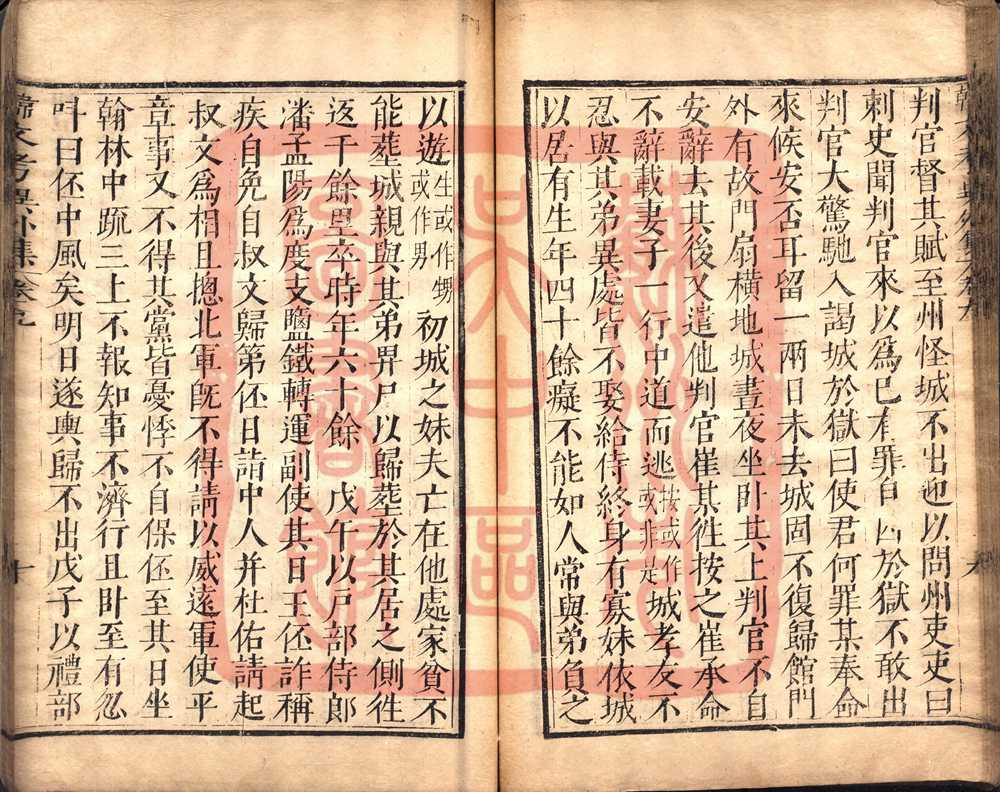 判官督其賦至州怪城不出迎以問州吏吏曰
刺史聞判官來以爲已有罪自囚於獄不敢出
判官大驚馳入謁城於獄曰使君何罪某奉命
來候安否耳留一兩日未去城固不復歸館門
外有故門扇橫地城晝夜坐臥其上判官不自
安辭去其後又遣他判官崔某徃按之崔承命
不辭載妻子一行中道而逃按或作或非是城孝友不
忍與其弟異處皆不娶給侍終身有寡妹依城
以居有生年四十餘癡不能如人常與弟負之
以遊生或作甥或作男初城之妹夫亡在他處家貧不
能塟城親與其弟舁尸以歸塟於其居之側徃
返千餘里卒時年六十餘 戊午以戸部侍郎
潘孟陽爲度支鹽鐵轉運副使其日王伾詐稱
疾自免自叔文歸第伾日請中人并杜佑請起
叔文爲相且摠北軍旣不得請以威遠軍使平
章事又不得其黨皆憂悸不自保伾至其日坐
翰林中疏三上不報知事不濟行且臥至夜忽
呌曰伾中風矣明日遂輿歸不出戊子以禮部
韓文考異外集卷九
十